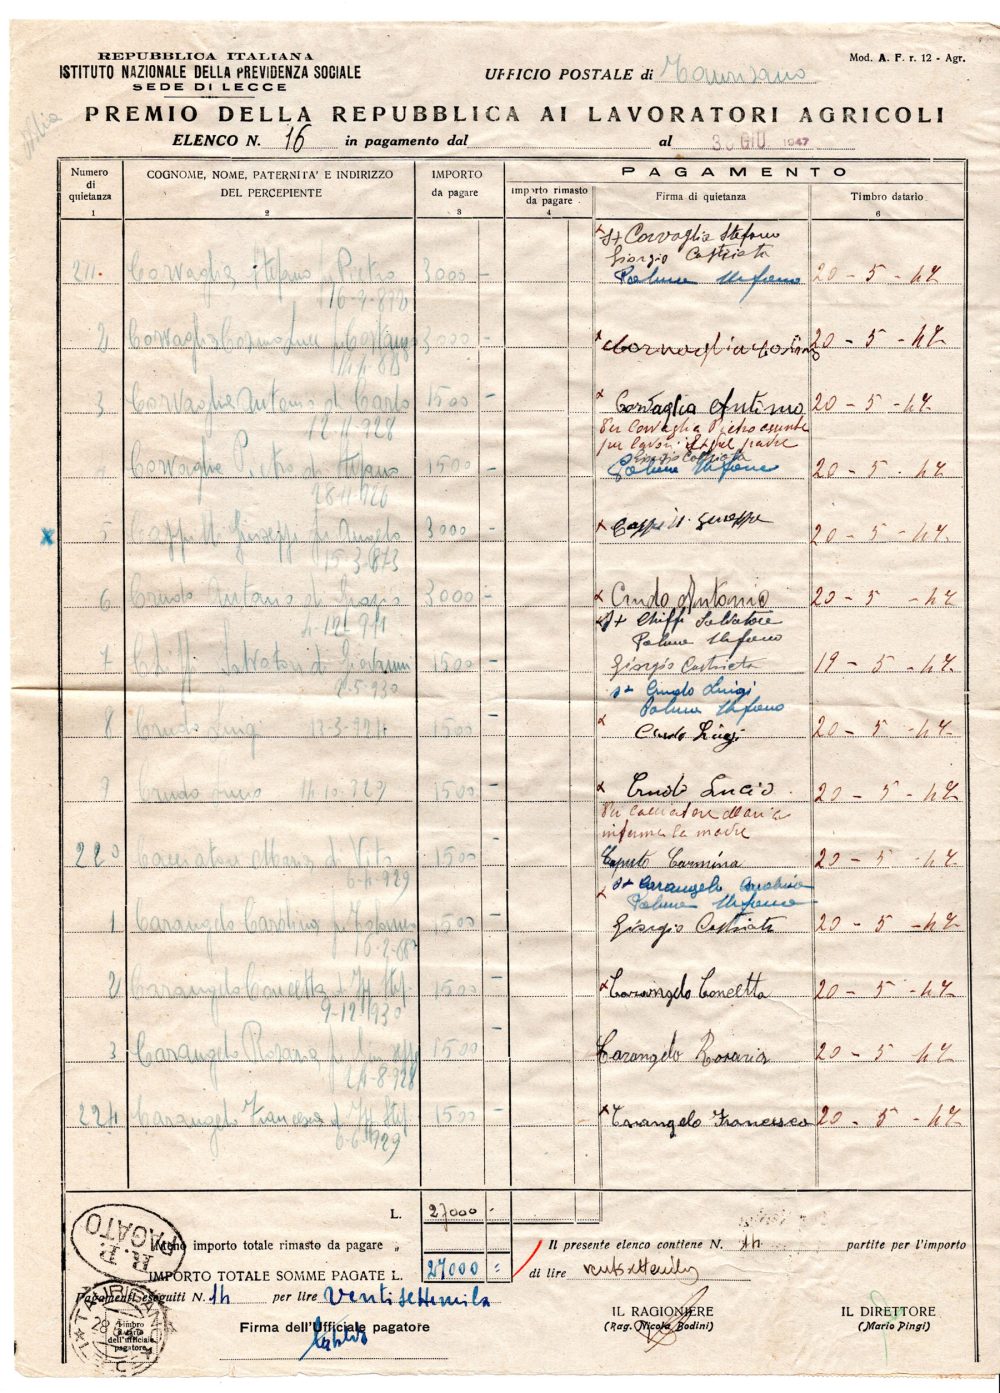 REPUBBLICA ITALIANA
ISTITUTO NAZIONALE DELLA PREVIDENZA SOCIALE
SEDE DI LECCE
UFFICIO POSTALE di Taurisano
Mod. A. F. r. 12 - Agr.
PREMIO DELLA REPUBBLICA AI LAVORATORI AGRICOLI
ELENCO N. 16 in pagamento dal al 30 GIU. 1947
Numero di quietanza
1
COGNOME, NOME, PATERNITA' E INDIRIZZO DEL PERCEPIENTE
2
IMPORTO da pagare
3
PAGAMENTO
Importo rimasto da pagare
4
Firma di quietanza
Timbro datario
6
s+ Corvaglia Stefano
Giorgio Castriota
211. Corvaglia Stefano fu Pietro 3000 - Palma Stefano 20 - 5 - 47
16-2-870
2 Corvaglia Cosimo Luce fu Costanzo 3000 - Corvaglia Cosimo 20 - 5 - 47
3 Corvaglia Antonio di Carlo 1500 - Corvaglia Antimo 20 - 5 - 47
12-11-928
Per Corvaglia Pietro assente
per lavori il padre
Giorgio Castriota
4 Corvaglia Pietro di Stefano 1500 - Palma Stefano 20 - 5 - 47
28-11-920
x 5 Cappilli Giuseppe fu Angelo 3000 - Cappilli Giuseppe 20 - 5 - 47
15-3-873
6 Crudo Antonio di Grazio 3000 - Crudo Antonio 20 - 5 - 47
4-12-911
s+ Chiffi Salvatore
Palma Stefano
7 Chiffi Salvatore di Giovanni 1500 - Giorgio Castriota 19 - 5 - 47
2-5-930
s+ Crudo Luigi
Palma Stefano
8 Crudo Luigi 13-3-924 1500 - Crudo Luigi 20 - 5 - 47
9 Crudo Lucio 14-10-929 1500 - Crudo Lucio 20 - 5 - 47
Per Cacciatore Maria
inferma la madre
220 Cacciatore Maria di Vito 1500 - Caputo Carmina 20 - 5 - 47
6-4-929
s+ Carangelo
Palma Stefano
1 Carangelo 1500 - Giorgio Castriota 20 - 5 - 47
2 Carangelo Concetta 1500 - Carangelo Concetta 20 - 5 - 47
9-12-930
3 Carangelo Rosaria fu Giuseppe 1500 - Carangelo Rosaria 20 - 5 - 47
24-8-928
224 Carangelo Francesca 1500 - Carangelo Francesca 20 - 5 - 47
6-6-929
L. 27000 -
R. P. PAGATO
Meno importo totale rimasto da pagare „
Il presente elenco contiene N. 14 partite per l'importo
IMPORTO TOTALE SOMME PAGATE L. 27000 =
di lire ventisettemila
Pagamenti eseguiti N. 14 per lire Ventisettemila
IL RAGIONIERE
(Rag. Nicola Bodini)
IL DIRETTORE
(Mario Pingi)
Firma dell'Ufficiale pagatore
TAURISANO
Timbro datario dell'ufficiale pagatore